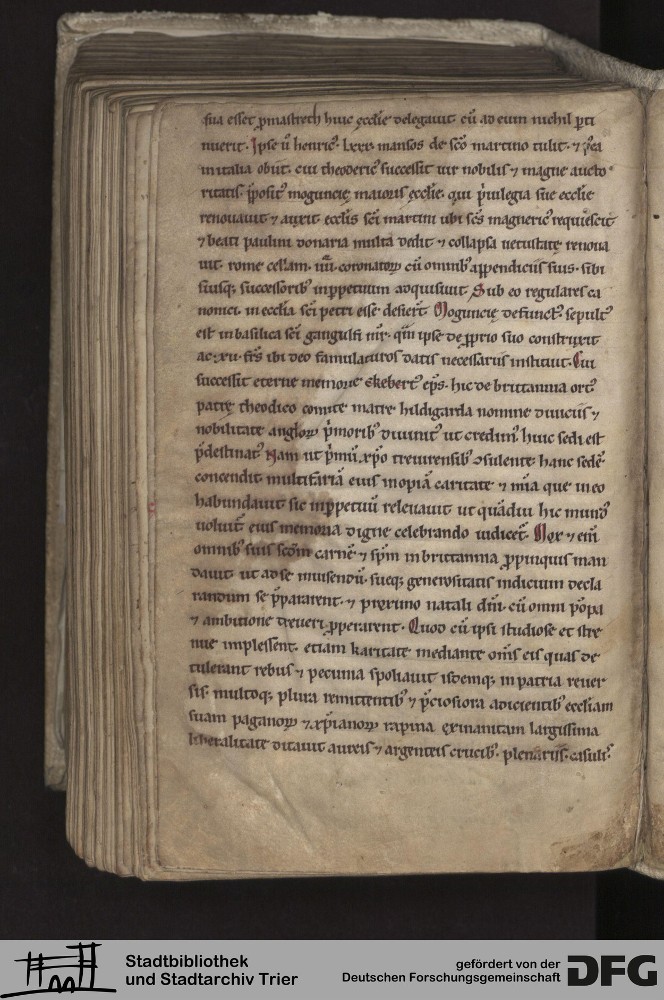 sua esset p̄mastrech huic ęcclīe delegavit. cū ad eum nichil ꝑti
nuerit. Ipse ū henric᷒ lxxx. mansos de sc̄o martino tulit. ⁊
in italia obiit. cui theoderic᷒ successit vir nobilis ⁊ magnę aucto
ritatis. p̄posit᷒ moguncię maioris ęcclīe. qui p̍vilegia suę ecclīe
renovavit ⁊ auxit. ecclīs sc̄i martini ubi sc̄s magneric᷒ requiescit
⁊ beati paulini donaria multa dedit ⁊ collapsa vetustate renova
vit. rome cellam .iiii. coronatoꝝ cū omnib᷒ appendiciis suis. sibi
suisq; successorib᷒ inppetuum adquisivit. Sub eo regulares ca
nonici in ecclīa sc̄i petri esse desierūt. Moguncię defunct᷒. sepult᷒
est in basilica sc̄i gangulfi m̄r. quā ipse de ꝓprio suo construxit
ac .xii. fr̄s ibi deo famulaturos datis necessariis instituit. Cui
successit eternę memorię ekebert᷒ ep̄s. hic de brittannia ort᷒
patre theodico comite matre hildigarda nomine diviciis ⁊
nobilitate angloꝝ p̍morib᷒ divinit᷒ ut credim᷒ huic sedi est
p̄destinat᷒ Nam ut p̍mū xp̄o trevirensib᷒ ↄsulente hanc sedē
concendit multifariā eius inopiā caritate ⁊ mīa que in eo
habundavit sic inppetuū relevavit ut quādiu hic mund᷒
volvit᷒ eius memoria digne celebrando iudicet᷒. Mox ⁊ enī
omnib᷒ suis scdm̄ carnē ⁊ sp̄m in brittannia ꝓpinquis man
davit ut ad se invisendū. sueq; generositatis indicium decla
randum se p̄pararent. ⁊ proximo natali dn̄i. cū omni pōpa
⁊ ambitione treveri ꝓperarent. Quod cū ipsi studiose et stre
nue implessent. etiam karitate mediante om̄s eis quas de
tulerant rebus ⁊ pecunia spoliavit isdemq; in patria rever
sis. multoq; plura remittentib᷒ ⁊ p̄ciosiora adicientib᷒ eccliam
suam paganoꝝ ⁊ xp̄ianoꝝ rapina exinanitam largissima
liberalitate ditavit aureis ⁊ argenteis crucib᷒. plenariis. casulis.
Stadtbibliothek
und Stadtarchiv Trier
gefördert von der
Deutschen Forschungsgemeinschaft
DFG